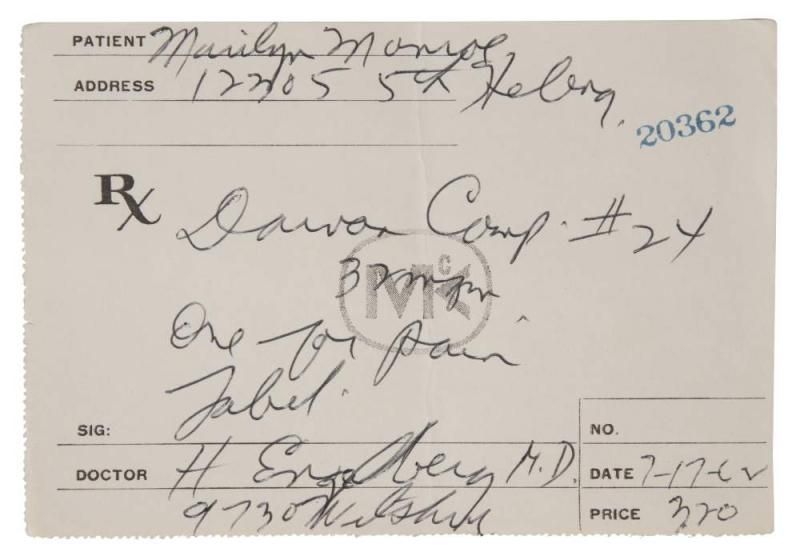 PATIENT Marilyn Monroe
ADDRESS 12305 5th Helena
20362
Rx Darvon Comp. #24
32 mgm
McK
One for pain
Label.
SIG:
NO.
DOCTOR H Engelberg M.D.
DATE 7-17-62
9730 Wilshire
PRICE 320